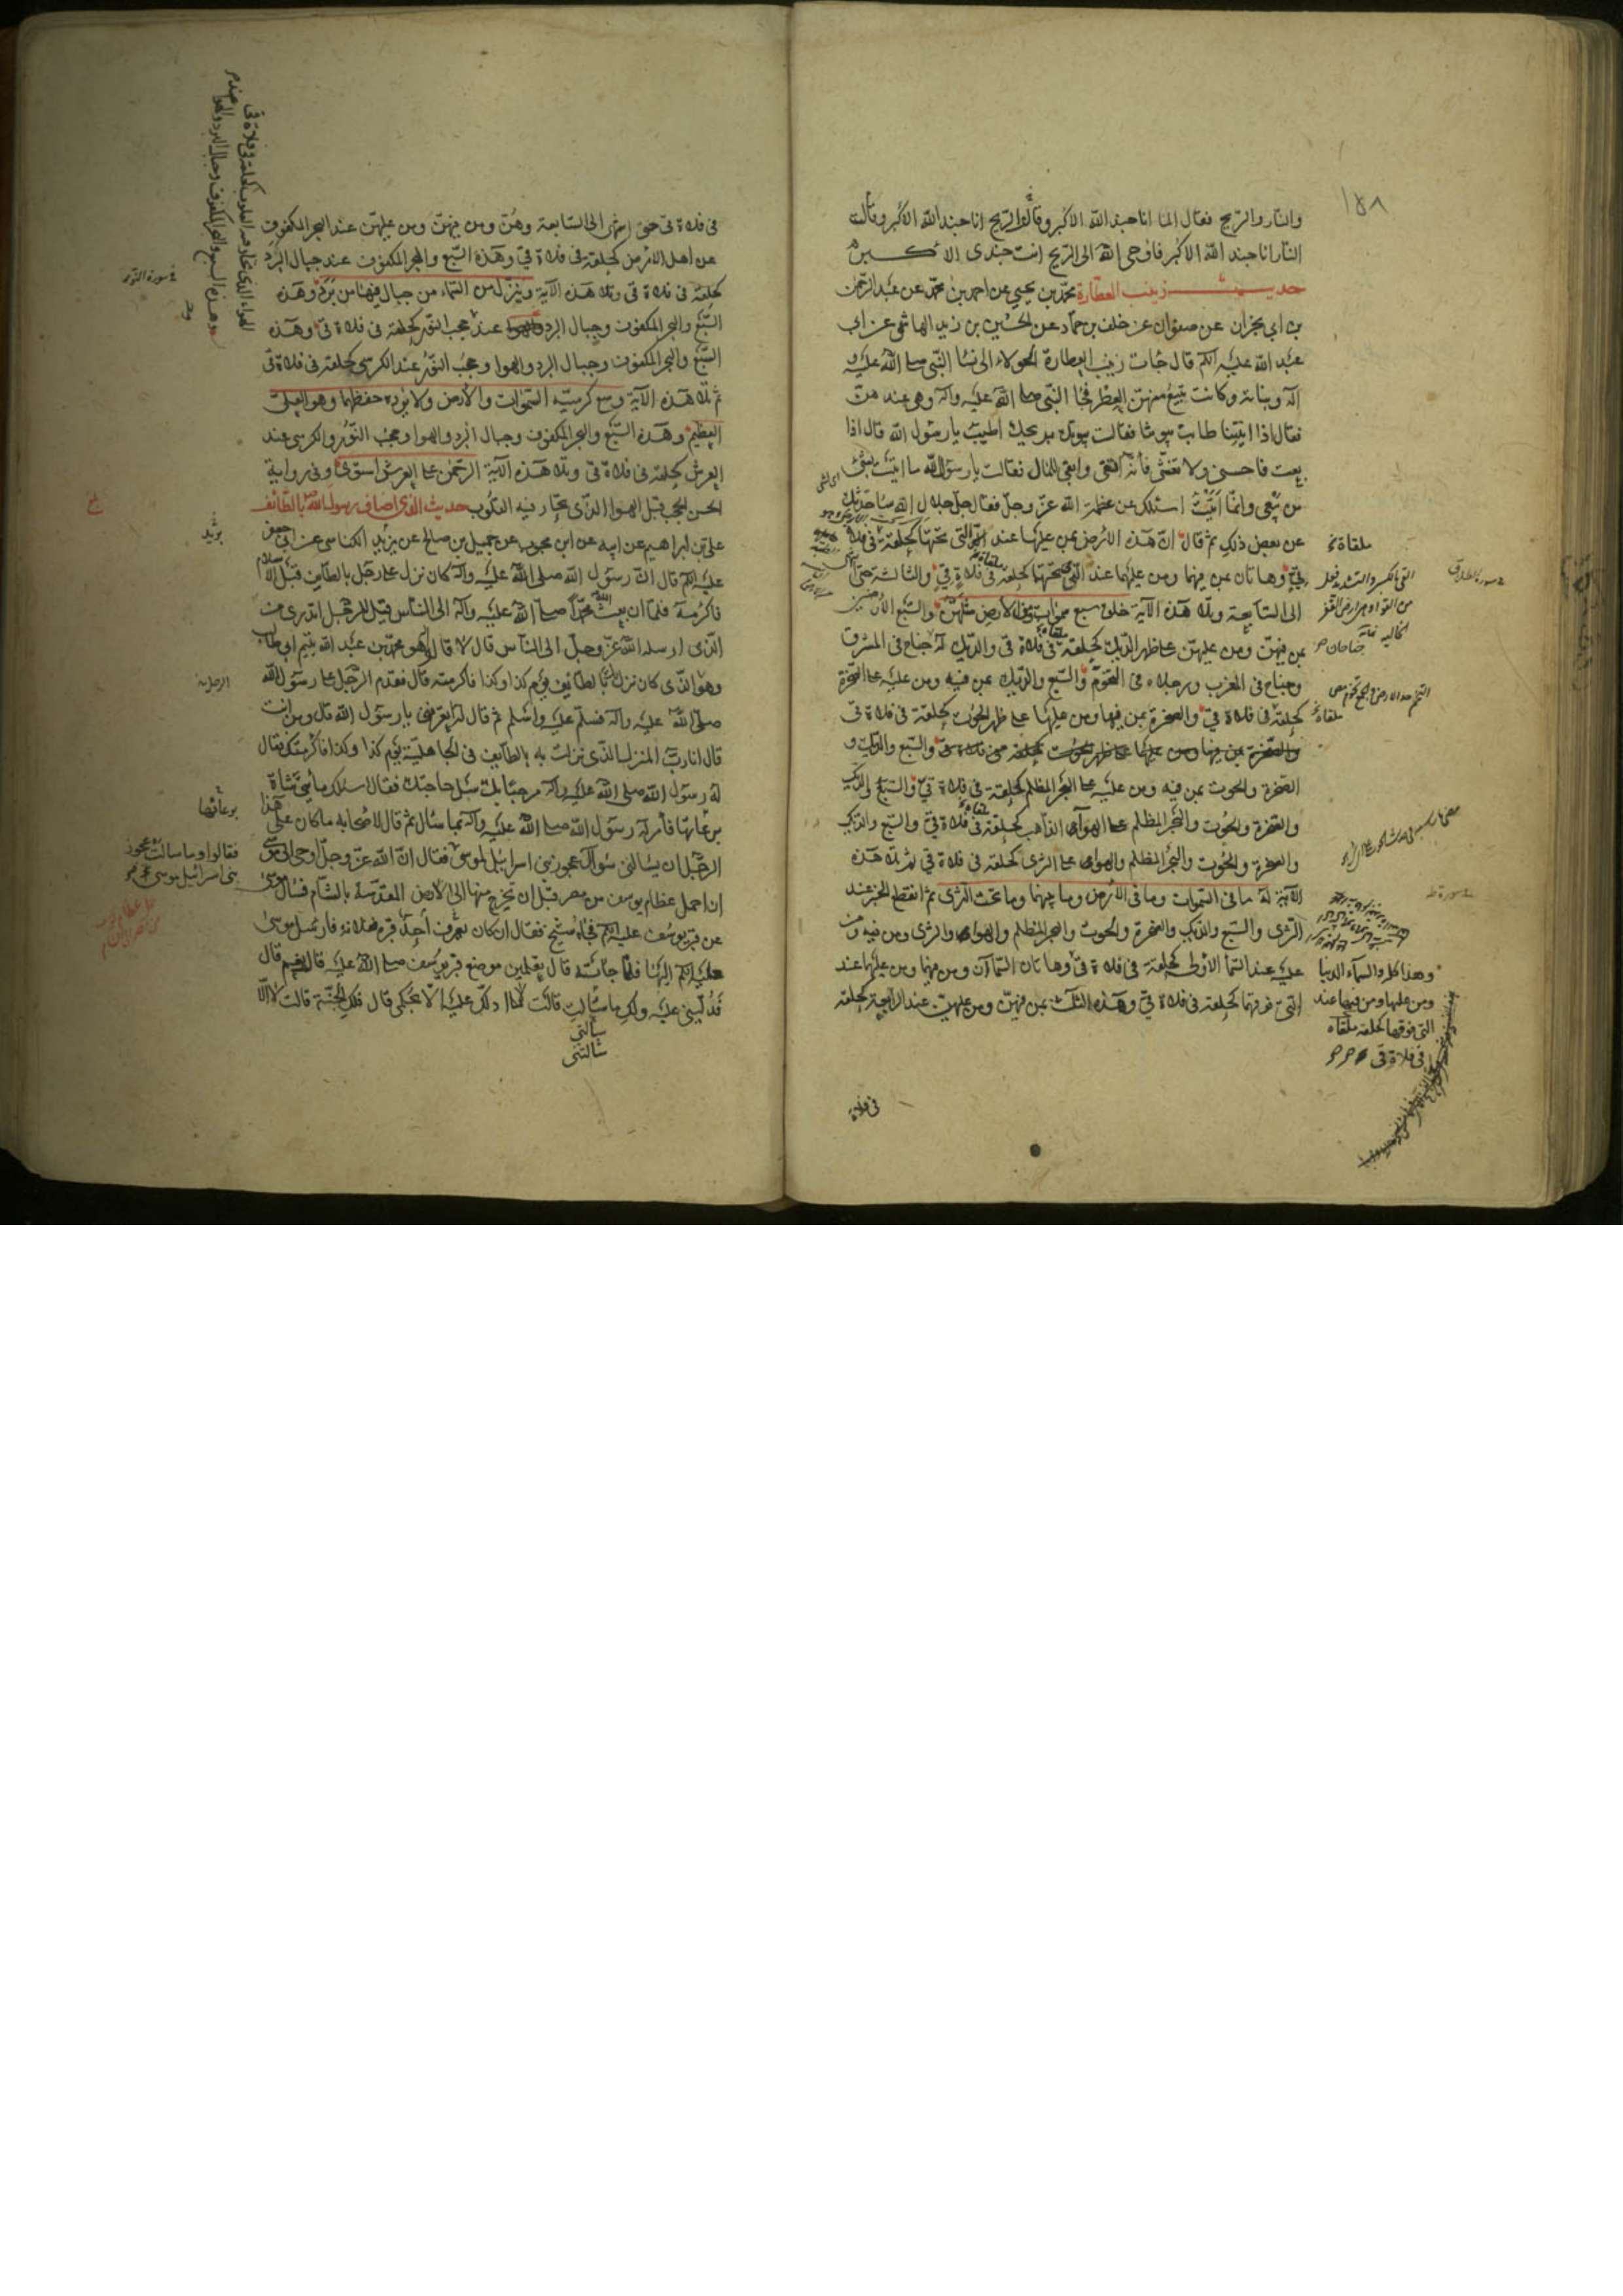 ١٥٨
والنار والريح فقال الما انا جند الله الاكبر وقالت الريح انا جند الله الاكبر وقالت
النار انا جند الله الاكبر فاوحى الله الى الريح انت جندى الاكبر
حديث زينب العطارة محمد بن يحيى عن احمد بن محمد عن عبد الرحمن
بن ابى نجران عن صفوان عن خلف بن حماد عن الحسين بن زيد الهاشمى عن ابى
عبد الله عليه السلم قال جات زينب العطارة الحولاء الى نسا النبى صلى الله عليه و
اله وبناته وكانت تبيع منهن العطر فجا النبى صلى الله عليه واله وهى عندهن
فقال اذا اتيتنا طابت بيوتنا فقالت بيوتك بريحك اطيب يا رسول الله قال اذا
بعت فاحسنى ولا تغشى فانه اتقى وابقى للمال فقالت يا رسول الله ما اتيت بشئ
من بيعى وانما اتيت اسئلك عن عظمة الله عز وجل فقال جل جلال الله ساحدثك
عن بعض ذلك ثم قال ان هذه الارض بمن عليها عند التى تحتها كحلقة فى فلاة
قى وهاتان بمن فيهما ومن عليهما عند التى تحتها كحلقة فى فلاة قى والثالثة حتى انتهى
الى السابعة وتلا هذه الاية خلق سبع سموات ومن الارض مثلهن والسبع الارضين
بمن فيهن ومن عليهن على ظهر الديك كحلقة فى فلاة قى والديك له جناح فى المشرق
وجناح فى المغرب ورجلاه فى التخوم والسبع والديك بمن فيه ومن عليه على الصخرة
كحلقة فى فلاة قى والصخرة بمن فيها ومن عليها على ظهر الحوت كحلقة فى فلاة قى
والسبع والديك و
الصخرة والحوت بمن فيه ومن عليه على البحر المظلم كحلقة فى فلاة قى والسبع والديك
والصخرة والحوت والبحر المظلم على الهوا الذاهب كحلقة فى فلاة قى والسبع والديك
والصخرة والحوت والبحر المظلم والهوا على الثرى كحلقة فى فلاة قى ثم تلا هذه
الاية له ما فى السموات وما فى الارض وما بينهما وما تحت الثرى ثم انقطع الخبر عند
الثرى والسبع والديك والصخرة والحوت والبحر المظلم والهوا والثرى ومن فيه ومن
عليه عند السما الاولى كحلقة فى فلاة قى وهاتان السماآن ومن فيهما ومن عليهما عند
التى فوقهما كحلقة فى فلاة قى وهذه الثلث بمن فيهن ومن عليهن عند الرابعة كحلقة
فى فلاة
ملقاة
القى بالكسر والتشديد فعل
من القواء وهى الارض القفر
الخالية
جناحان
ملقاة
وهذا كله والسماء الدنيا
ومن عليها ومن فيها عند
التى فوقها كحلقة ملقاه
فى فلاة قى
سورة الطلاق
سورة طه
فى فلاة قى حتى انتهى الى السابعة وهن ومن فيهن ومن عليهن عند البحر المكفوف
عن اهل الارض كحلقة فى فلاة قى وهذه السبع والبحر المكفوف عند جبال البرد
كحلقة فى فلاة قى وتلا هذه الاية وينزل من السماء من جبال فيها من برد وهذه
السبع والبحر المكفوف وجبال البرد عند حجب النور كحلقة فى فلاة قى وهذه
السبع والبحر المكفوف وجبال البرد والهوا وحجب النور عند الكرسى كحلقة فى فلاة قى
ثم تلا هذه الاية وسع كرسيه السموات والارض ولا يؤده حفظهما وهو العلى
العظيم وهذه السبع والبحر المكفوف وجبال البرد والهوا وحجب النور والكرسى عند
العرش كحلقة فى فلاة قى وتلا هذه الاية الرحمن على العرش استوى وفى رواية
الحسن الحجب قبل الهوا الذى تحار فيه القلوب حديث الذى اضاف رسول الله بالطائف
على بن ابراهيم عن ابيه عن ابن محبوب عن جميل بن صالح عن يزيد الكناسى عن ابى جعفر
عليه السلم قال ان رسول الله صلى الله عليه واله كان نزل على رجل بالطايف قبل الاسلام
فاكرمه فلما ان بعث الله محمدا صلى الله عليه واله الى الناس قيل للرجل اتدرى من
الذى ارسله الله عز وجل الى الناس قال لا قالوا هو محمد بن عبد الله يتيم ابى طالب
وهو الذى كان نزل بك بالطايف يوم كذا وكذا فاكرمته قال فقدم الرجل على رسول الله
صلى الله عليه واله فسلم عليه واسلم ثم قال له اتعرفنى يا رسول الله قال ومن انت
قال انا رب المنزل الذى نزلت به بالطايف فى الجاهلية يوم كذا وكذا فاكرمتك فقال
له رسول الله صلى الله عليه واله مرحبا بك سل حاجتك فقال اسئلك مأتى شاة
برعاتها فامر له رسول الله صلى الله عليه واله بما سال ثم قال لاصحابه ما كان على هذا
الرجل ان يسالنى سؤال عجوز بنى اسرائيل لموسى فقال ان الله عز وجل اوحى الى موسى
ان احمل عظام يوسف من مصر قبل ان تخرج منها الى الارض المقدسة بالشام فسال موسى
عن قبر يوسف عليه السلم فجاءه شيخ فقال ان كان يعرف احد قبره ففلانة فارسل موسى
عليه السلم اليها فلما جائته قال تعلمين موضع قبر يوسف صلى الله عليه قالت نعم قال
فدلينى عليه ولك ما سالت قالت لا ادلك عليه الا بحكمى قال فلك الجنة قالت لا الا
سألتى
سالتنى
سورة النور
بريد
الرجل
فقالوا وما سالت عجوز
بنى اسرائيل موسى